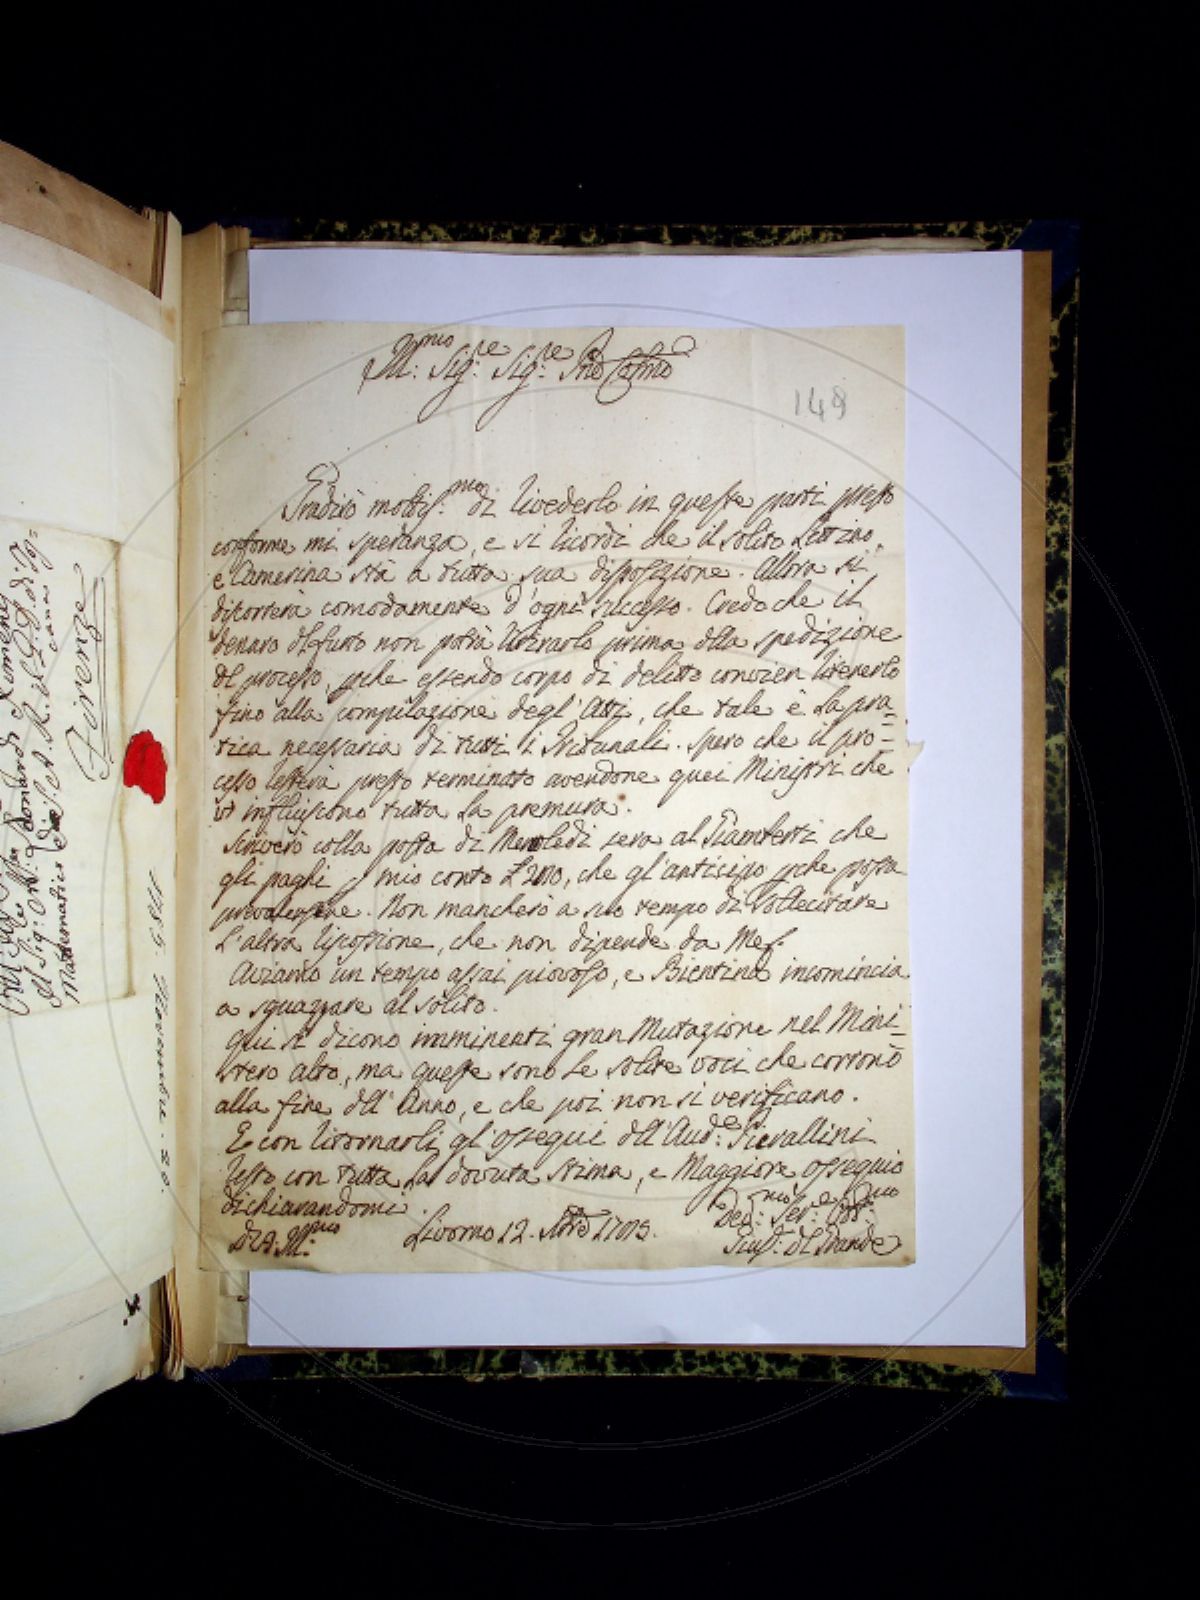 Ill:mo Sig:re Sig:re Prõn Colmo
149
Gradirò moltiss:mo di rivederlo in queste parti presto
conforme mi speranza, e si ricordi che il solito Lettino,
e Camerina stà a tutta sua disposizione. Allora si
discorrerà comodamente d'ogni successo. Credo che il
denaro del furto non potrà ritirarlo prima dlla spedizione
dl processo, pche essendo corpo di delitto convien ritenerlo
fino alla compilazione degl'Atti, che tale è la pra=
tica necessaria di tutti i Tribunali. Spero che il pro=
cesso resterà presto terminato avendone quei Ministri che
vi influiscono tutta la premura.
Scriverò colla posta di Mercoledì sera al Giamberti che
gli paghi p mio conto £ 200, che gl'anticipo pche possa
prevalersene. Non mancherò a suo tempo di sollecitare
l'altra riscossione, che non dipende da Me.
Aviamo un tempo assai piovoso, e Bientina incomincia
a sguazzare al solito.
Qui si dicono imminenti gran Mutazione nel Mini=
stero alto, ma queste sono le solite voci che corrono
alla fine dll'Anno, e che poi non si verificano.
E con ritornarli gl'ossequi dll'Aud:e Pierallini
resto con tutta la dovuta stima, e Maggiore ossequio
dichiarandomi.
Di V.S. Ill:ma
Livorno 12.
Dev:mo Ser:e Obb:mo
Gius: dl Grande
Al Sig: Dott: Leonardo Ximenes
Matematico di S. A. R. il G. D. di Tos=
cana
Firenze